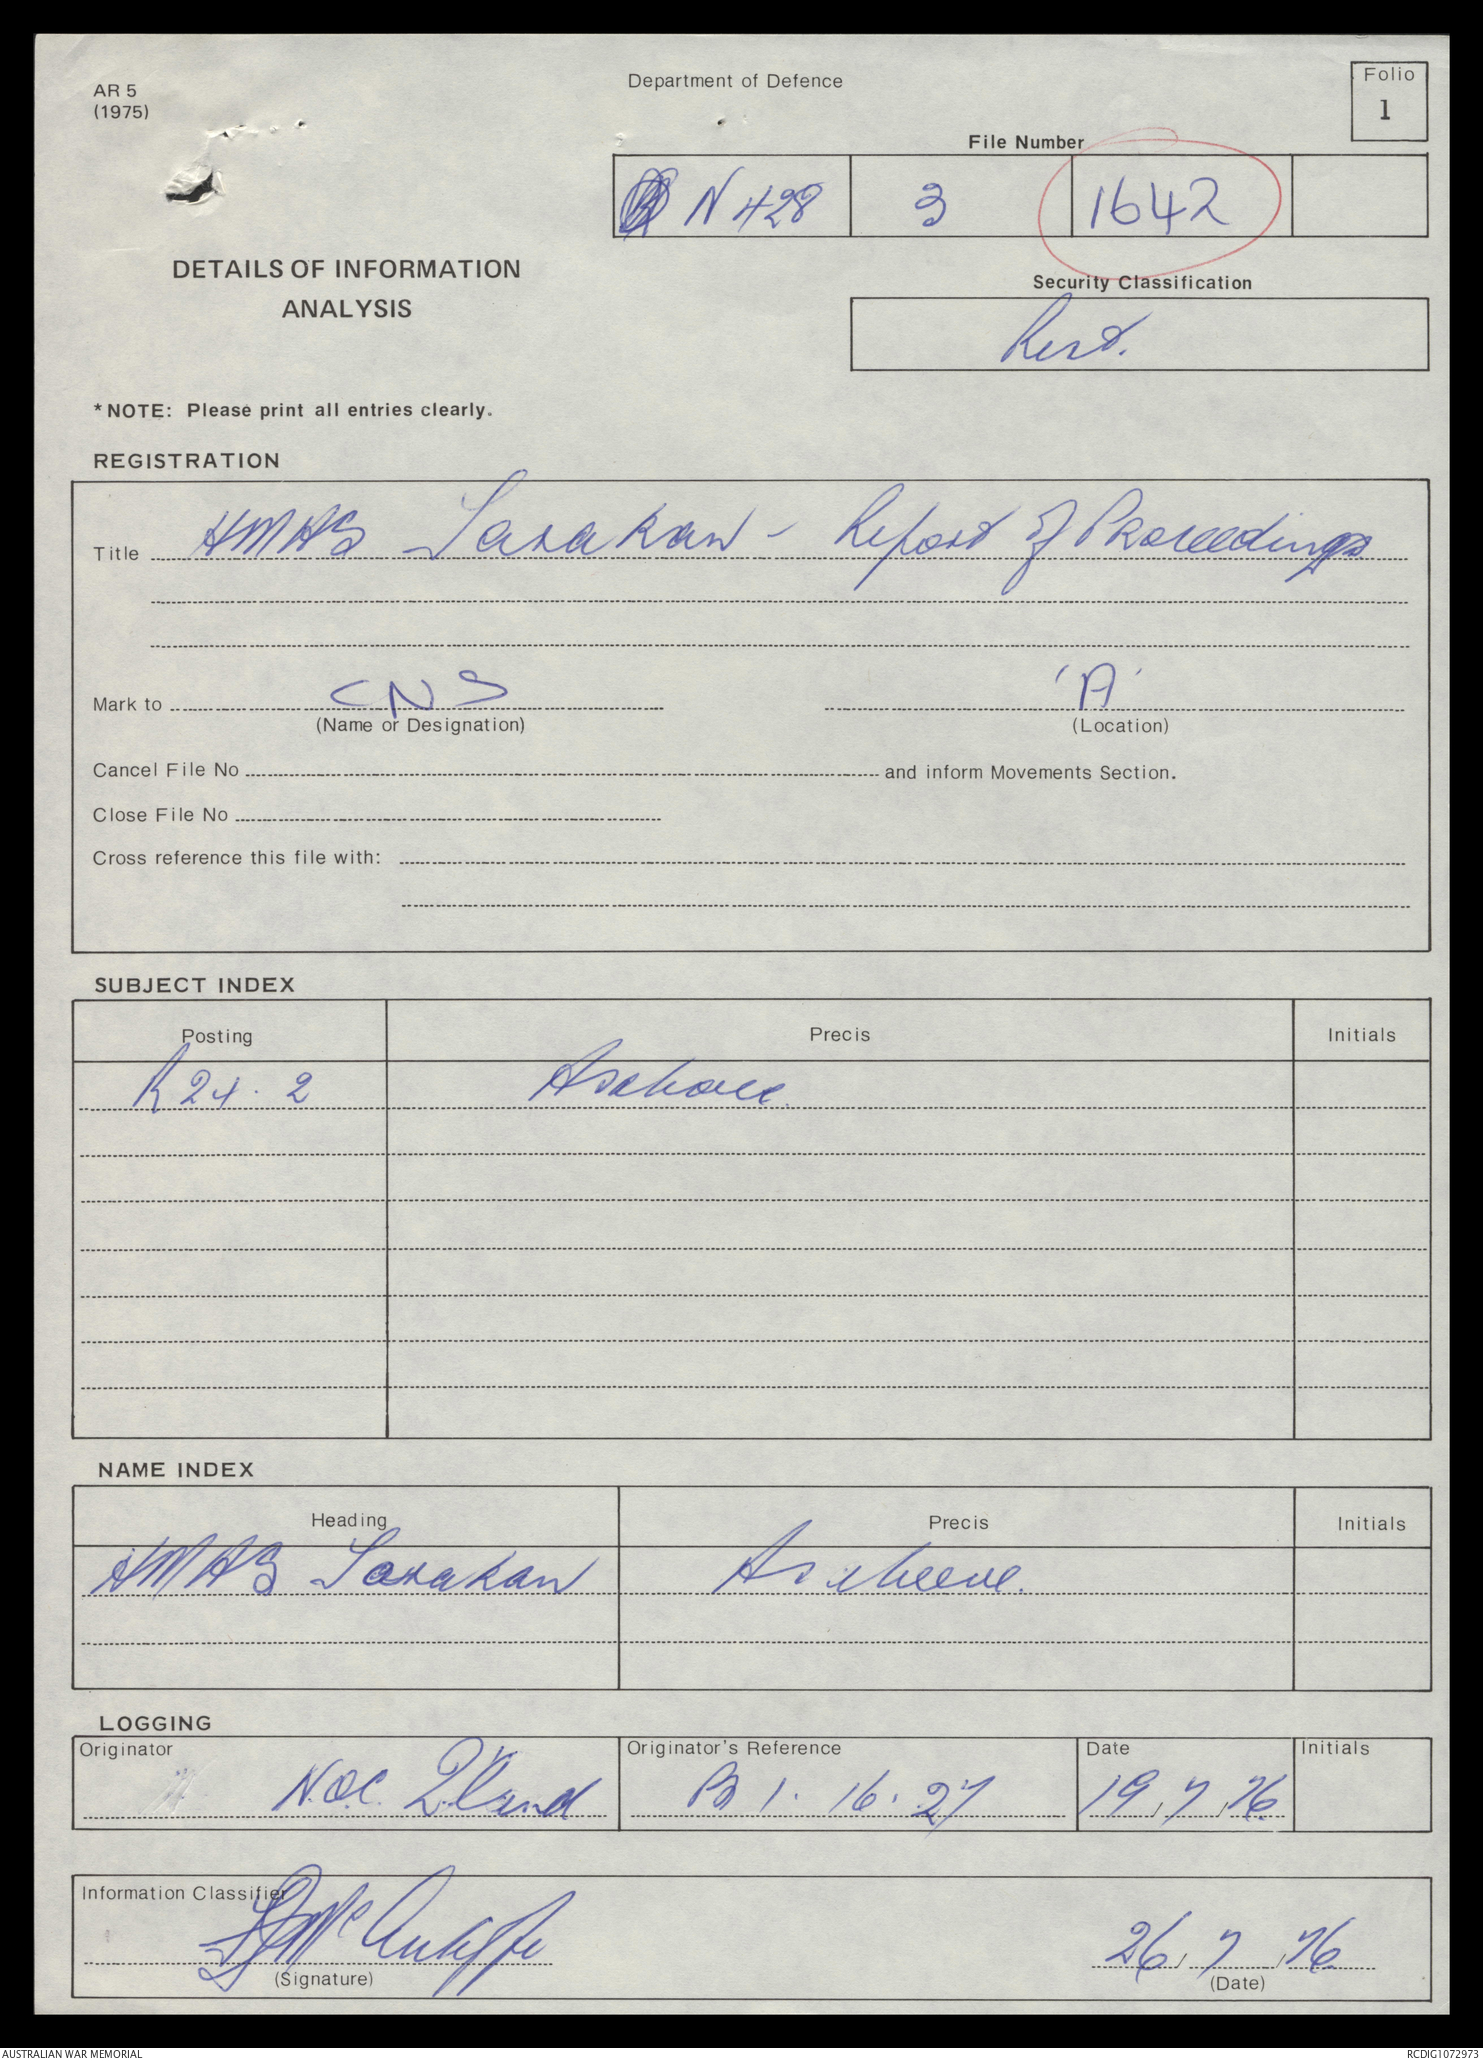 AR 5
(1975)
Department of Defence
Folio
1
File Number
N 428 3 1642
DETAILS OF INFORMATION
ANALYSIS
Security Classification
Rest.
*NOTE: Please print all entries clearly.
REGISTRATION
Title HMAS Tarakan - Report of Proceedings
Mark to CNS 'A'
(Name or Designation) (Location)
Cancel File No and inform Movements Section.
Close File No
Cross reference this file with:
SUBJECT INDEX
Posting Precis Initials
R24.2 As above.
NAME INDEX
Heading Precis Initials
HMAS Tarakan As above.
LOGGING
Originator Originator's Reference Date Initials
N.O.C. Q'land B 1.16.27 19,7,76
Information Classifier
26,7,76
(Signature) (Date)
AUSTRALIAN WAR MEMORIAL RCDIG1072973